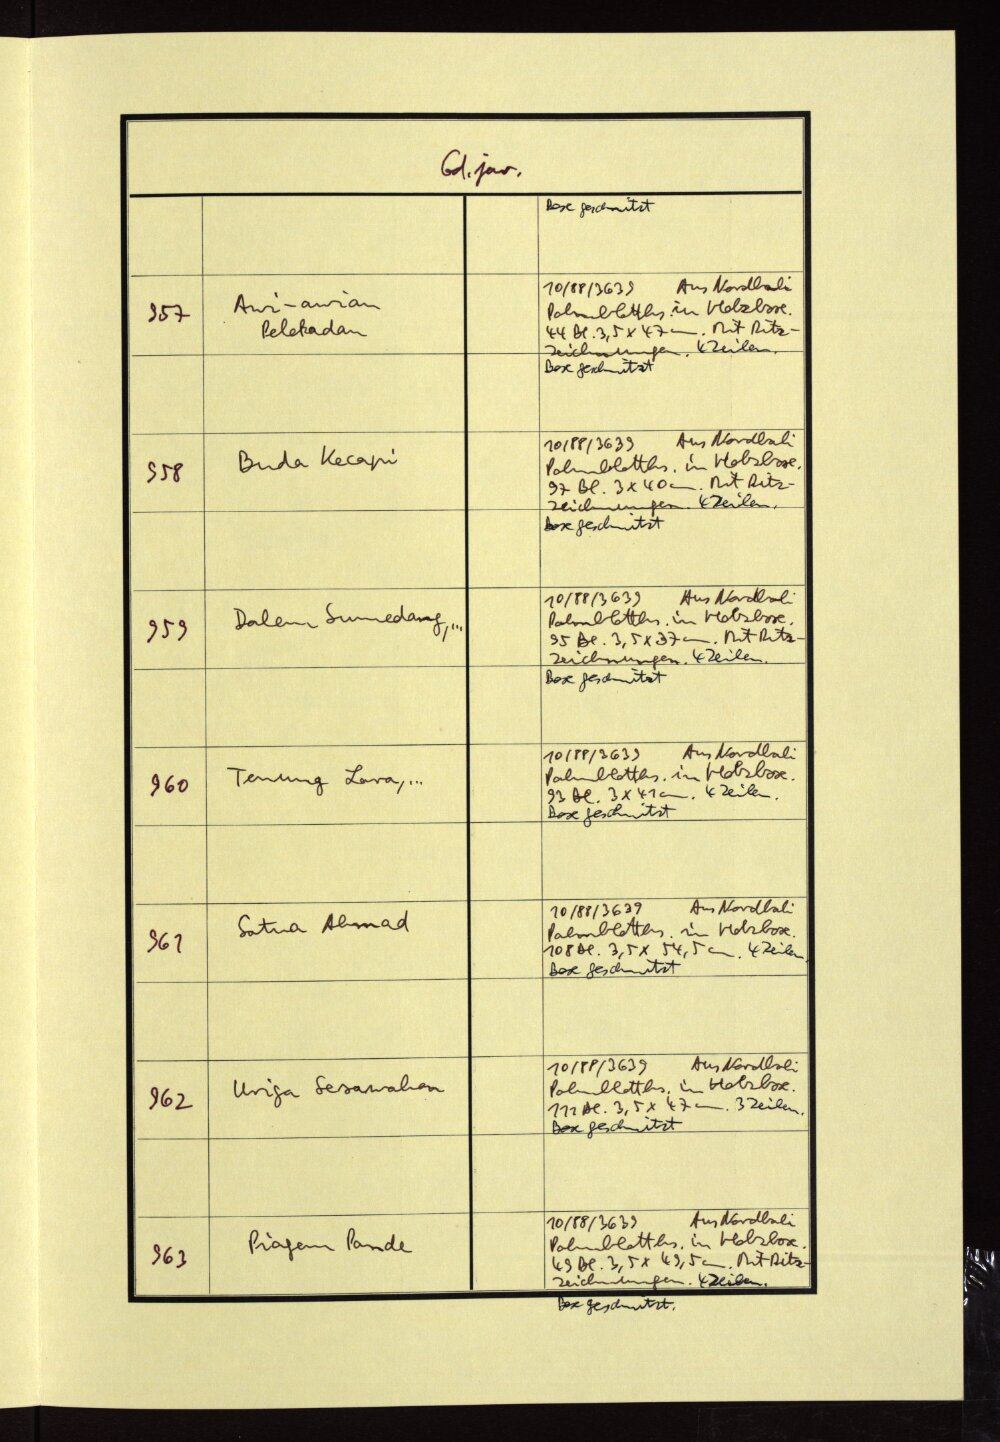 Cod. jav.
Box geschnitzt
957
Awi-awian
Pelekadan
10/88/3639 Aus Nordbali
Palmblatths. in Holzbox.
44 Bl. 3,5 x 47 cm. Mit Ritz-
zeichnungen. 4 Zeilen.
Box geschnitzt
958
Buda Kecapi
10/88/3639 Aus Nordbali
Palmblatths. in Holzbox.
97 Bl. 3 x 40 cm. Mit Ritz-
zeichnungen. 4 Zeilen.
Box geschnitzt
959
Dalem Sumedang,...
10/88/3639 Aus Nordbali
Palmblatths. in Holzbox.
95 Bl. 3,5 x 37 cm. Mit Ritz-
zeichnungen. 4 Zeilen.
Box geschnitzt
960
Tenung Lara,...
10/88/3639 Aus Nordbali
Palmblatths. in Holzbox.
93 Bl. 3 x 41 cm. 4 Zeilen.
Box geschnitzt
961
Satua Ahmad
10/88/3639 Aus Nordbali
Palmblatths. in Holzbox.
108 Bl. 3,5 x 54,5 cm. 4 Zeilen.
Box geschnitzt
962
Wriga Sesawahan
10/88/3639 Aus Nordbali
Palmblatths. in Holzbox.
111 Bl. 3,5 x 47 cm. 3 Zeilen.
Box geschnitzt
963
Piagem Pande
10/88/3639 Aus Nordbali
Palmblatths. in Holzbox.
49 Bl. 3,5 x 49,5 cm. Mit Ritz-
zeichnungen. 4 Zeilen.
Box geschnitzt.